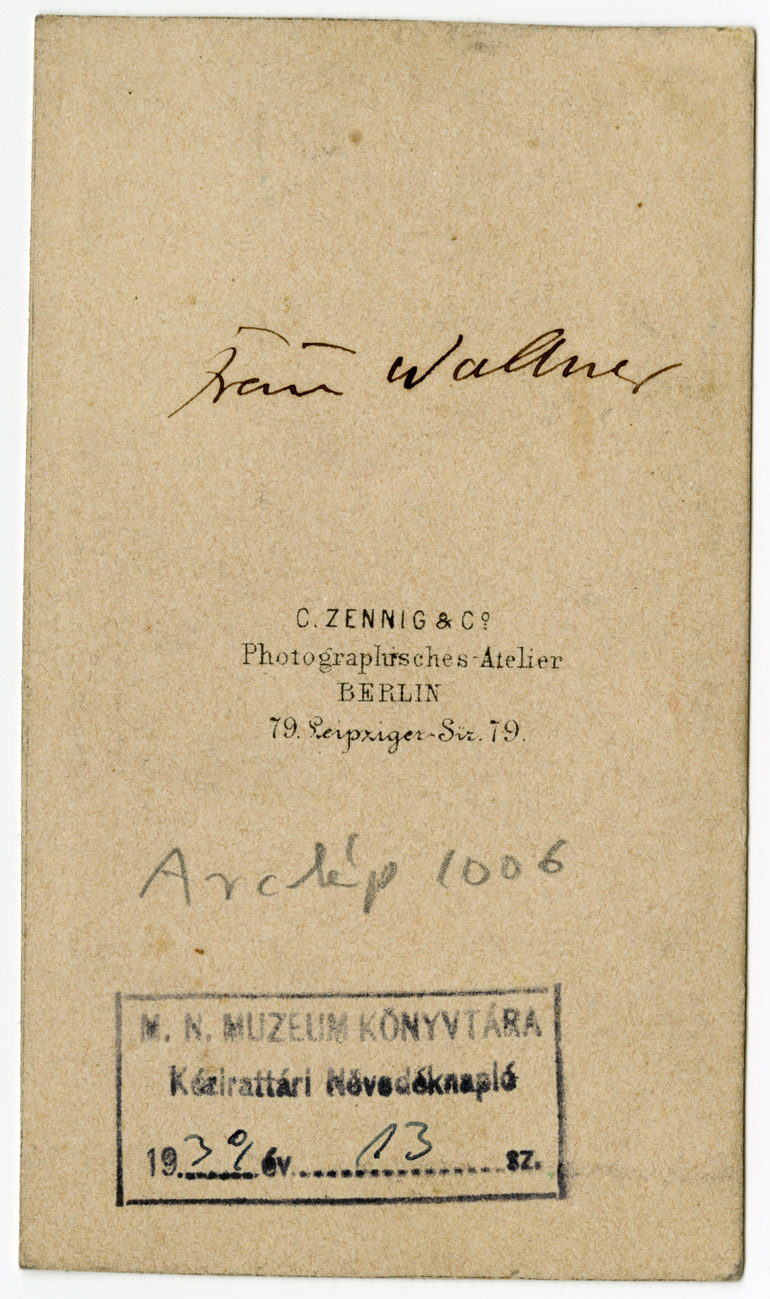 Frau Wallner
C. ZENNIG & Cº
Photographisches-Atelier
BERLIN
79. Leipziger-Str. 79.
Arckép 1006
M. N. MUZEUM KÖNYVTÁRA
Kézirattári Növedéknapló
1939 év 13 sz.